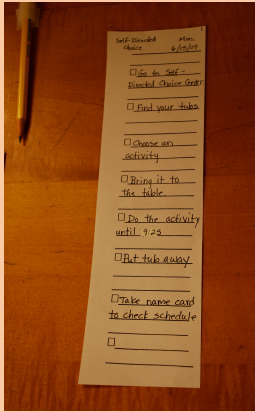 Self-Directed Mon.
Choice 6/15/09
Go to Self-
Directed Choice Center
Find your tubs
Choose an
activity
Bring it to
the table
Do the activity
until 9:25
Put tub away
Take name card
to check schedule